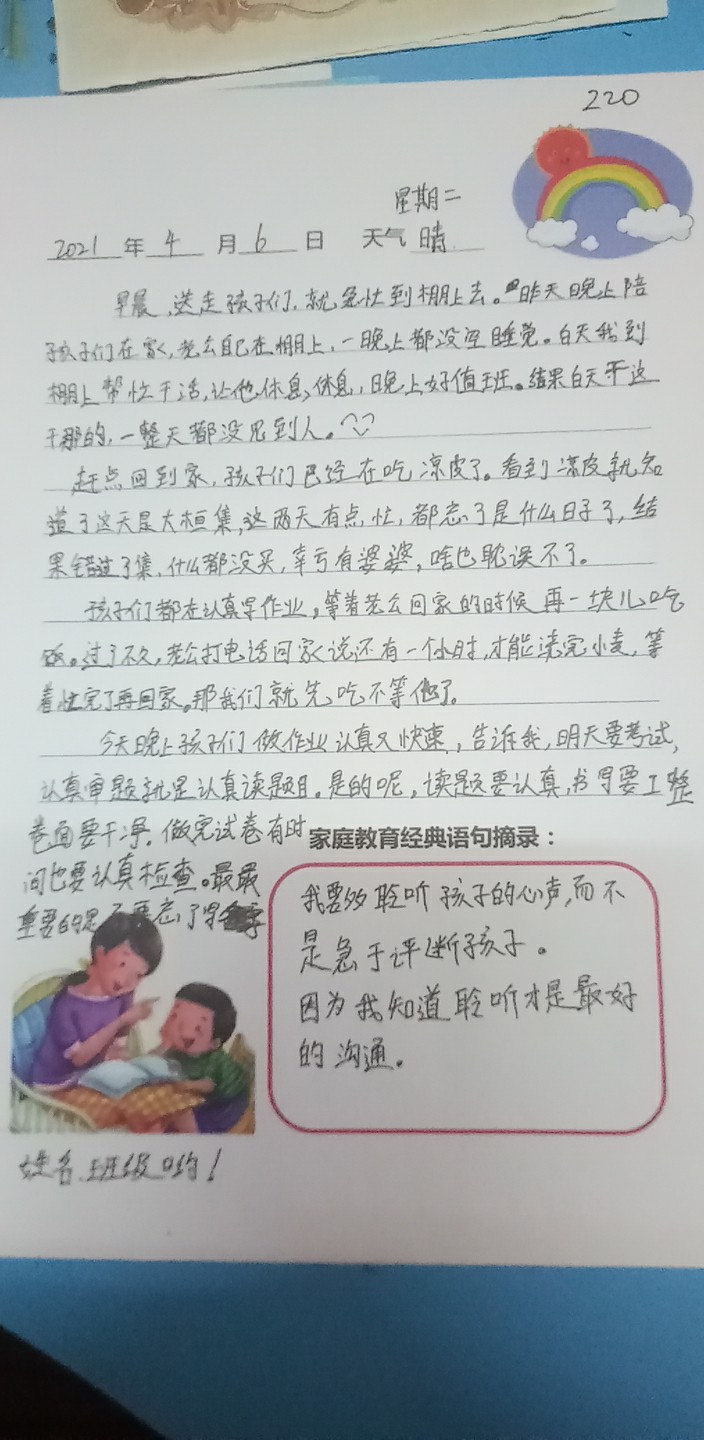 220
星期二
2021 年 4 月 6 日 天气 晴
早晨,送走孩子们,就急忙到棚上去。昨天晚上陪
孩子们在家,老公自己在棚上,一晚上都没睡觉。白天我到
棚上帮忙干活,让他休息休息,晚上好值班。结果白天干这
干那的,一整天都没见到人。
赶点回到家,孩子们已经在吃凉皮了。看到凉皮就知
道了这天是大桓集,这两天有点忙,都忘了是什么日子了,结
果错过了集,什么都没买,幸亏有婆婆,啥也耽误不了。
孩子们都在认真写作业,等着老公回家的时候再一块儿吃
饭。过了不久,老公打电话回家说还有一个小时,才能浇完小麦,等
着忙完了再回家。那我们就先吃不等他了。
今天晚上孩子们做作业认真又快速,告诉我,明天要考试,
认真审题就是认真读题目。是的呢,读题要认真,书写要工整
卷面要干净,做完试卷有时
间也要认真检查。最最
重要的是不要忘了写
姓名、班级哟!
家庭教育经典语句摘录:
我要多聆听孩子的心声,而不
是急于评断孩子。
因为我知道聆听才是最好
的沟通。